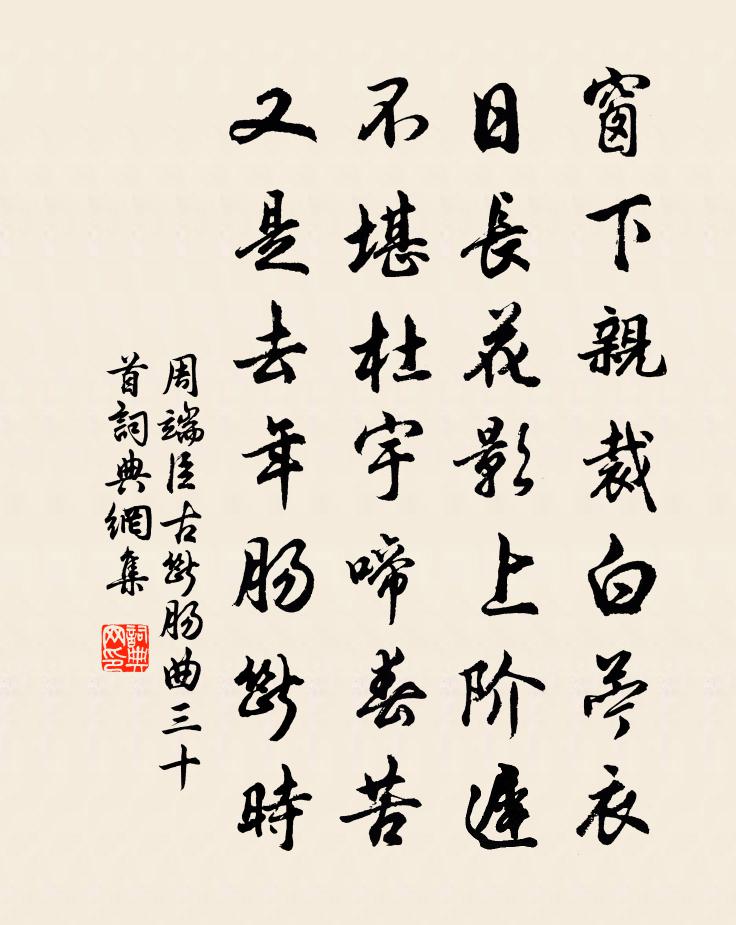 窗下親裁白苧衣
日長花影上阶遲
不堪杜宇啼春苦
又是去年腸斷時
周端臣古斷腸曲三十
首詞典網集
詞典
网印